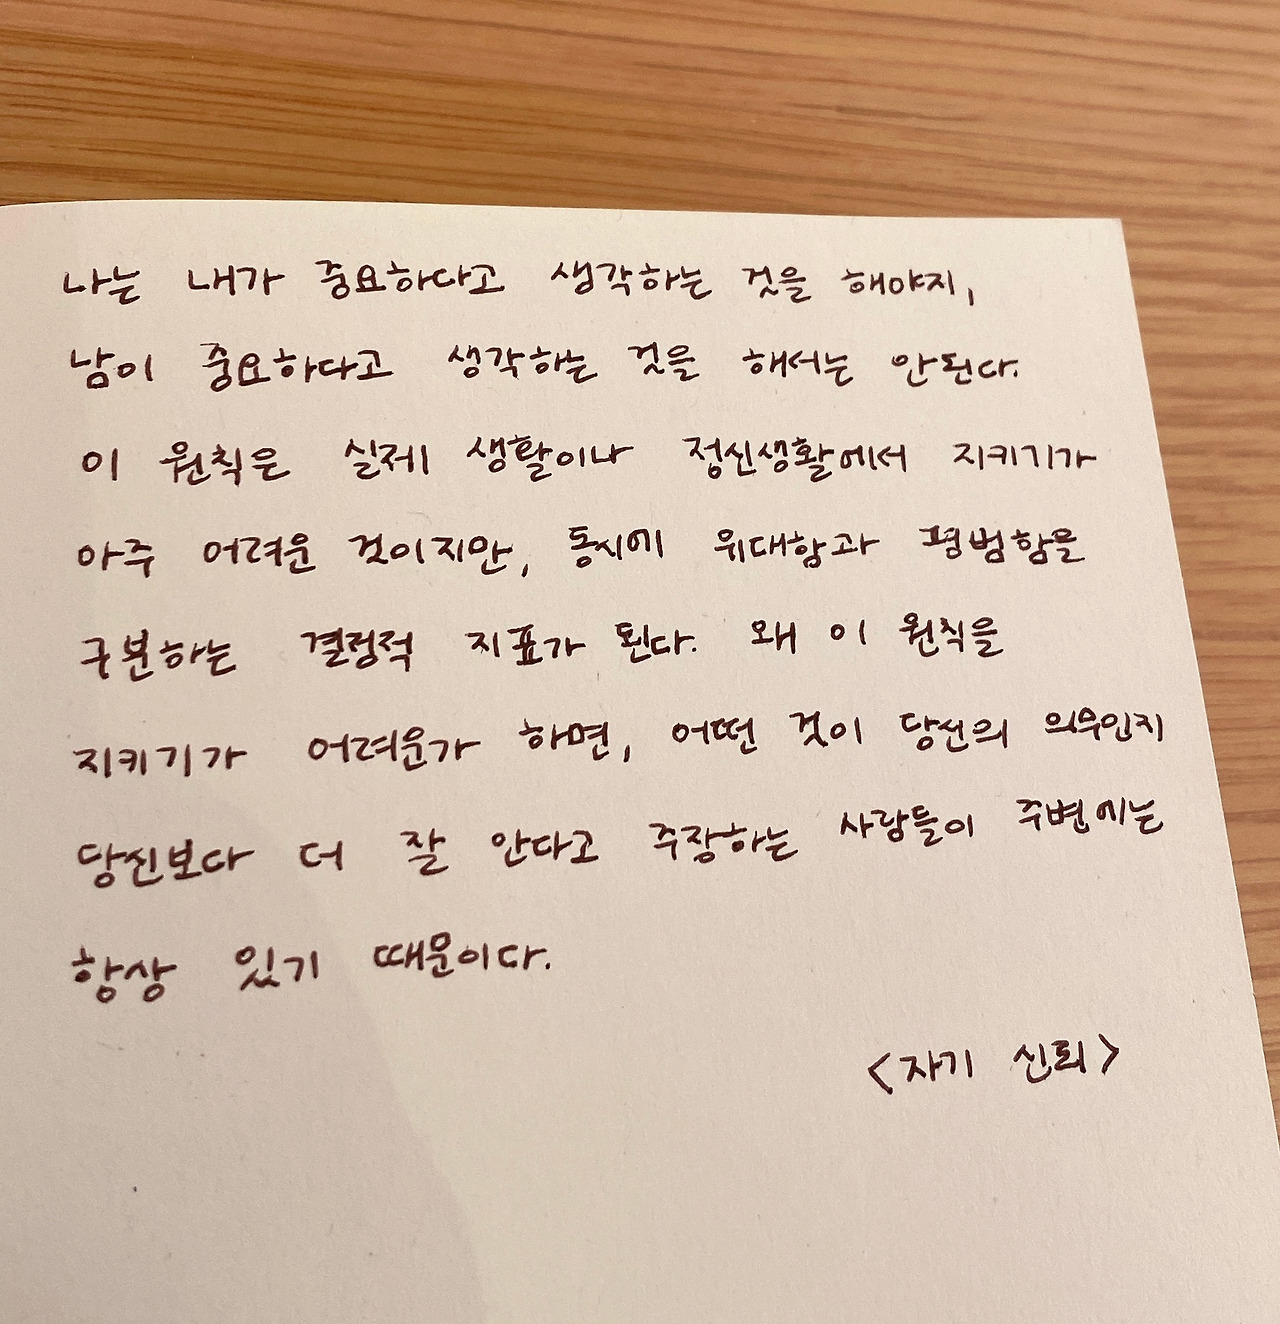 나는 내가 중요하다고 생각하는 것을 해야지,
남이 중요하다고 생각하는 것을 해서는 안된다.
이 원칙은 실제 생활이나 정신생활에서 지키기가
아주 어려운 것이지만, 동시에 위대함과 평범함을
구분하는 결정적 지표가 된다. 왜 이 원칙을
지키기가 어려운가 하면, 어떤 것이 당신의 의무인지
당신보다 더 잘 안다고 주장하는 사람들이 주변에는
항상 있기 때문이다.
<자기 신뢰>